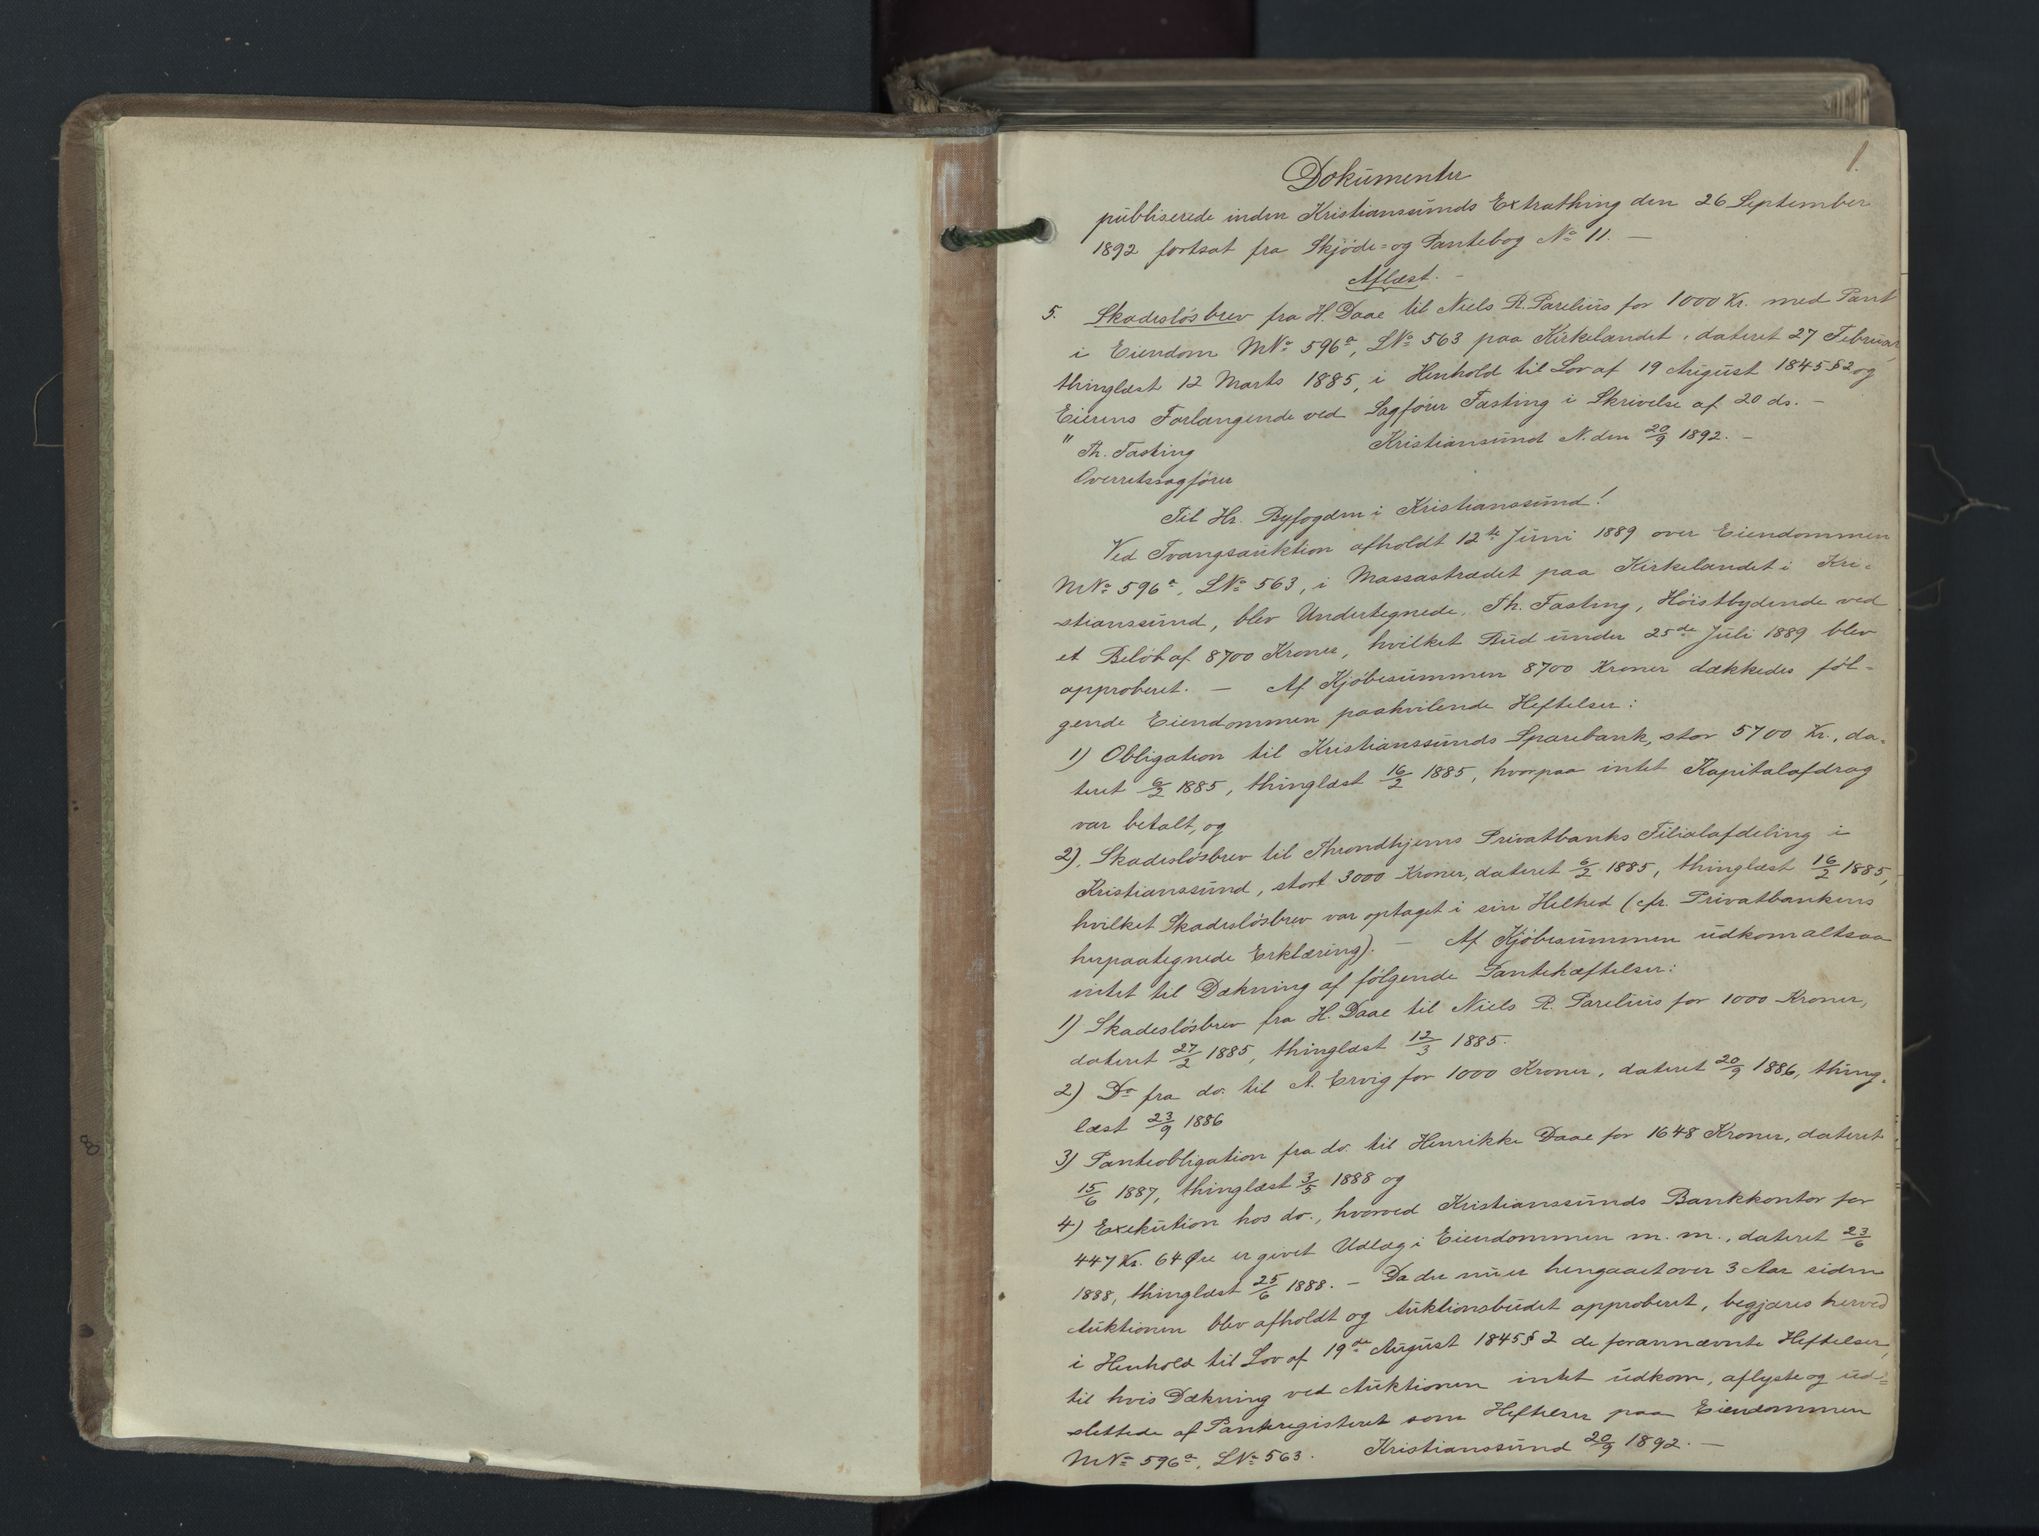 1.
Dokumenter
publiserede inden Kristianssunds Extrathing den 26 September
1892 fortsat fra Skjöde- og Pantebog No 11. —
Aflæst. —
5. Skadesløsbrev fra H. Daae til Niels R. Parelius for 1000 Kr. med Pant
i Eiendom MNo 596a, LNo 563 paa Kirkelandet, dateret 27 Februar,
thinglæst 12 Marts 1885, i Henhold til Lov af 19 August 1845 § 2 og
Eierens Forlangende ved Sagfører Fasting i Skrivelse af 20 ds. —
" Th. Fasting Kristianssund N. den 20/9 1892. —
Overretssagfører
Til Hr. Byfogden i Kristianssund!
Ved Tvangsauktion afholdt 12te Juni 1889 over Eiendommen
MNo 596a, LNo 563, i Massastrædet paa Kirkelandet i Kri-
stianssund, blev Undertegnede, Th. Fasting, Høistbydende ved
et Beløb af 8700 Kroner, hvilket Bud under 25de Juli 1889 blev
approberet. — Af Kjøbesummen 8700 Kroner dækkedes føl-
gende Eiendommen paahvilende Heftelser:
1) Obligation til Kristianssunds Sparebank, stor 5700 Kr., da-
teret 6/2 1885, thinglæst 16/2 1885, hvorpaa intet Kapitalafdrag
var betalt, og
2). Skadesløsbrev til Throndhjems Privatbanks Filialafdeling i
Kristianssund, stort 3000 Kroner, dateret 6/2 1885, thinglæst 16/2 1885,
hvilket Skadesløsbrev var optaget i sin Helhed (cfr. Privatbankens
herpaategnede Erklæring). — Af Kjøbesummen udkom altsaa
intet til Dækning af følgende Pantehæftelser:
1) Skadesløsbrev fra H. Daae til Niels R. Parelius for 1000 Kroner,
dateret 27/2 1885, thinglæst 12/3 1885.
2) Do fra do. til A. Ervig for 1000 Kroner, dateret 20/9 1886, thing-
læst 23/9 1886
3) Panteobligation fra do. til Henrikke Daae for 1648 Kroner, dateret
15/6 1887, thinglæst 3/5 1888 og
4) Exekution hos do., hvorved Kristianssunds Bankkontor for
447 Kr. 64 Øre er givet Udlæg i Eiendommen m. m., dateret 23/6
1888, thinglæst 25/6 1888. — Da der nu er hengaaet over 3 Aar siden
Auktionen blev afholdt og Auktionsbudet approberet, begjæres herved
i Henhold til Lov af 19de August 1845 § 2 de forannævnte Heftelser,
til hvis Dækning ved Auktionen intet udkom, aflyste og ud-
slettede af Panteregisteret som Heftelser paa Eiendommen
MNo 596a, LNo 563. Kristianssund 20/9 1892. —
8